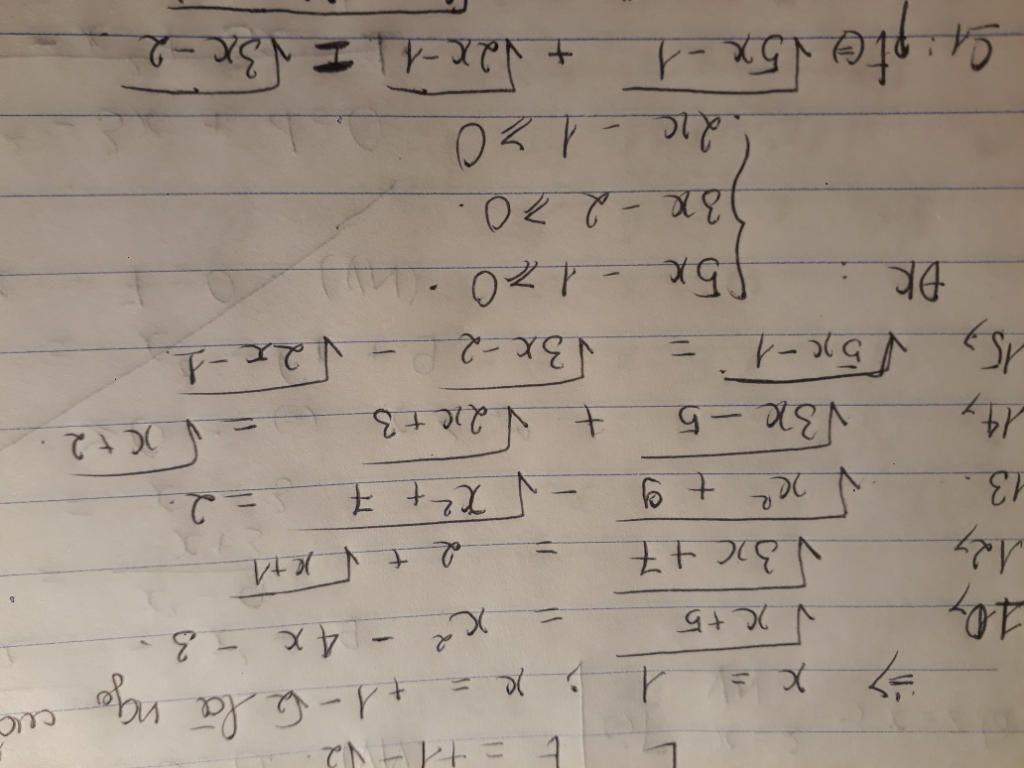 t = +1 - √2.
=> x = 1 ; x = +1 - √2 là ngo
10, √x+5 = x² - 4x - 3.
12, √3x+7 = 2 + √x+1
13. √x²+9 - √x²+7 = 2.
14, √3x-5 + √2x+3 = √x+2.
15, √5x-1 = √3x-2 - √2x-1.
ĐK : { 5x - 1 ≥ 0.
3x - 2 ≥ 0.
2x - 1 ≥ 0
C1: pt <=> √5x-1 + √2x-1 = √3x-2